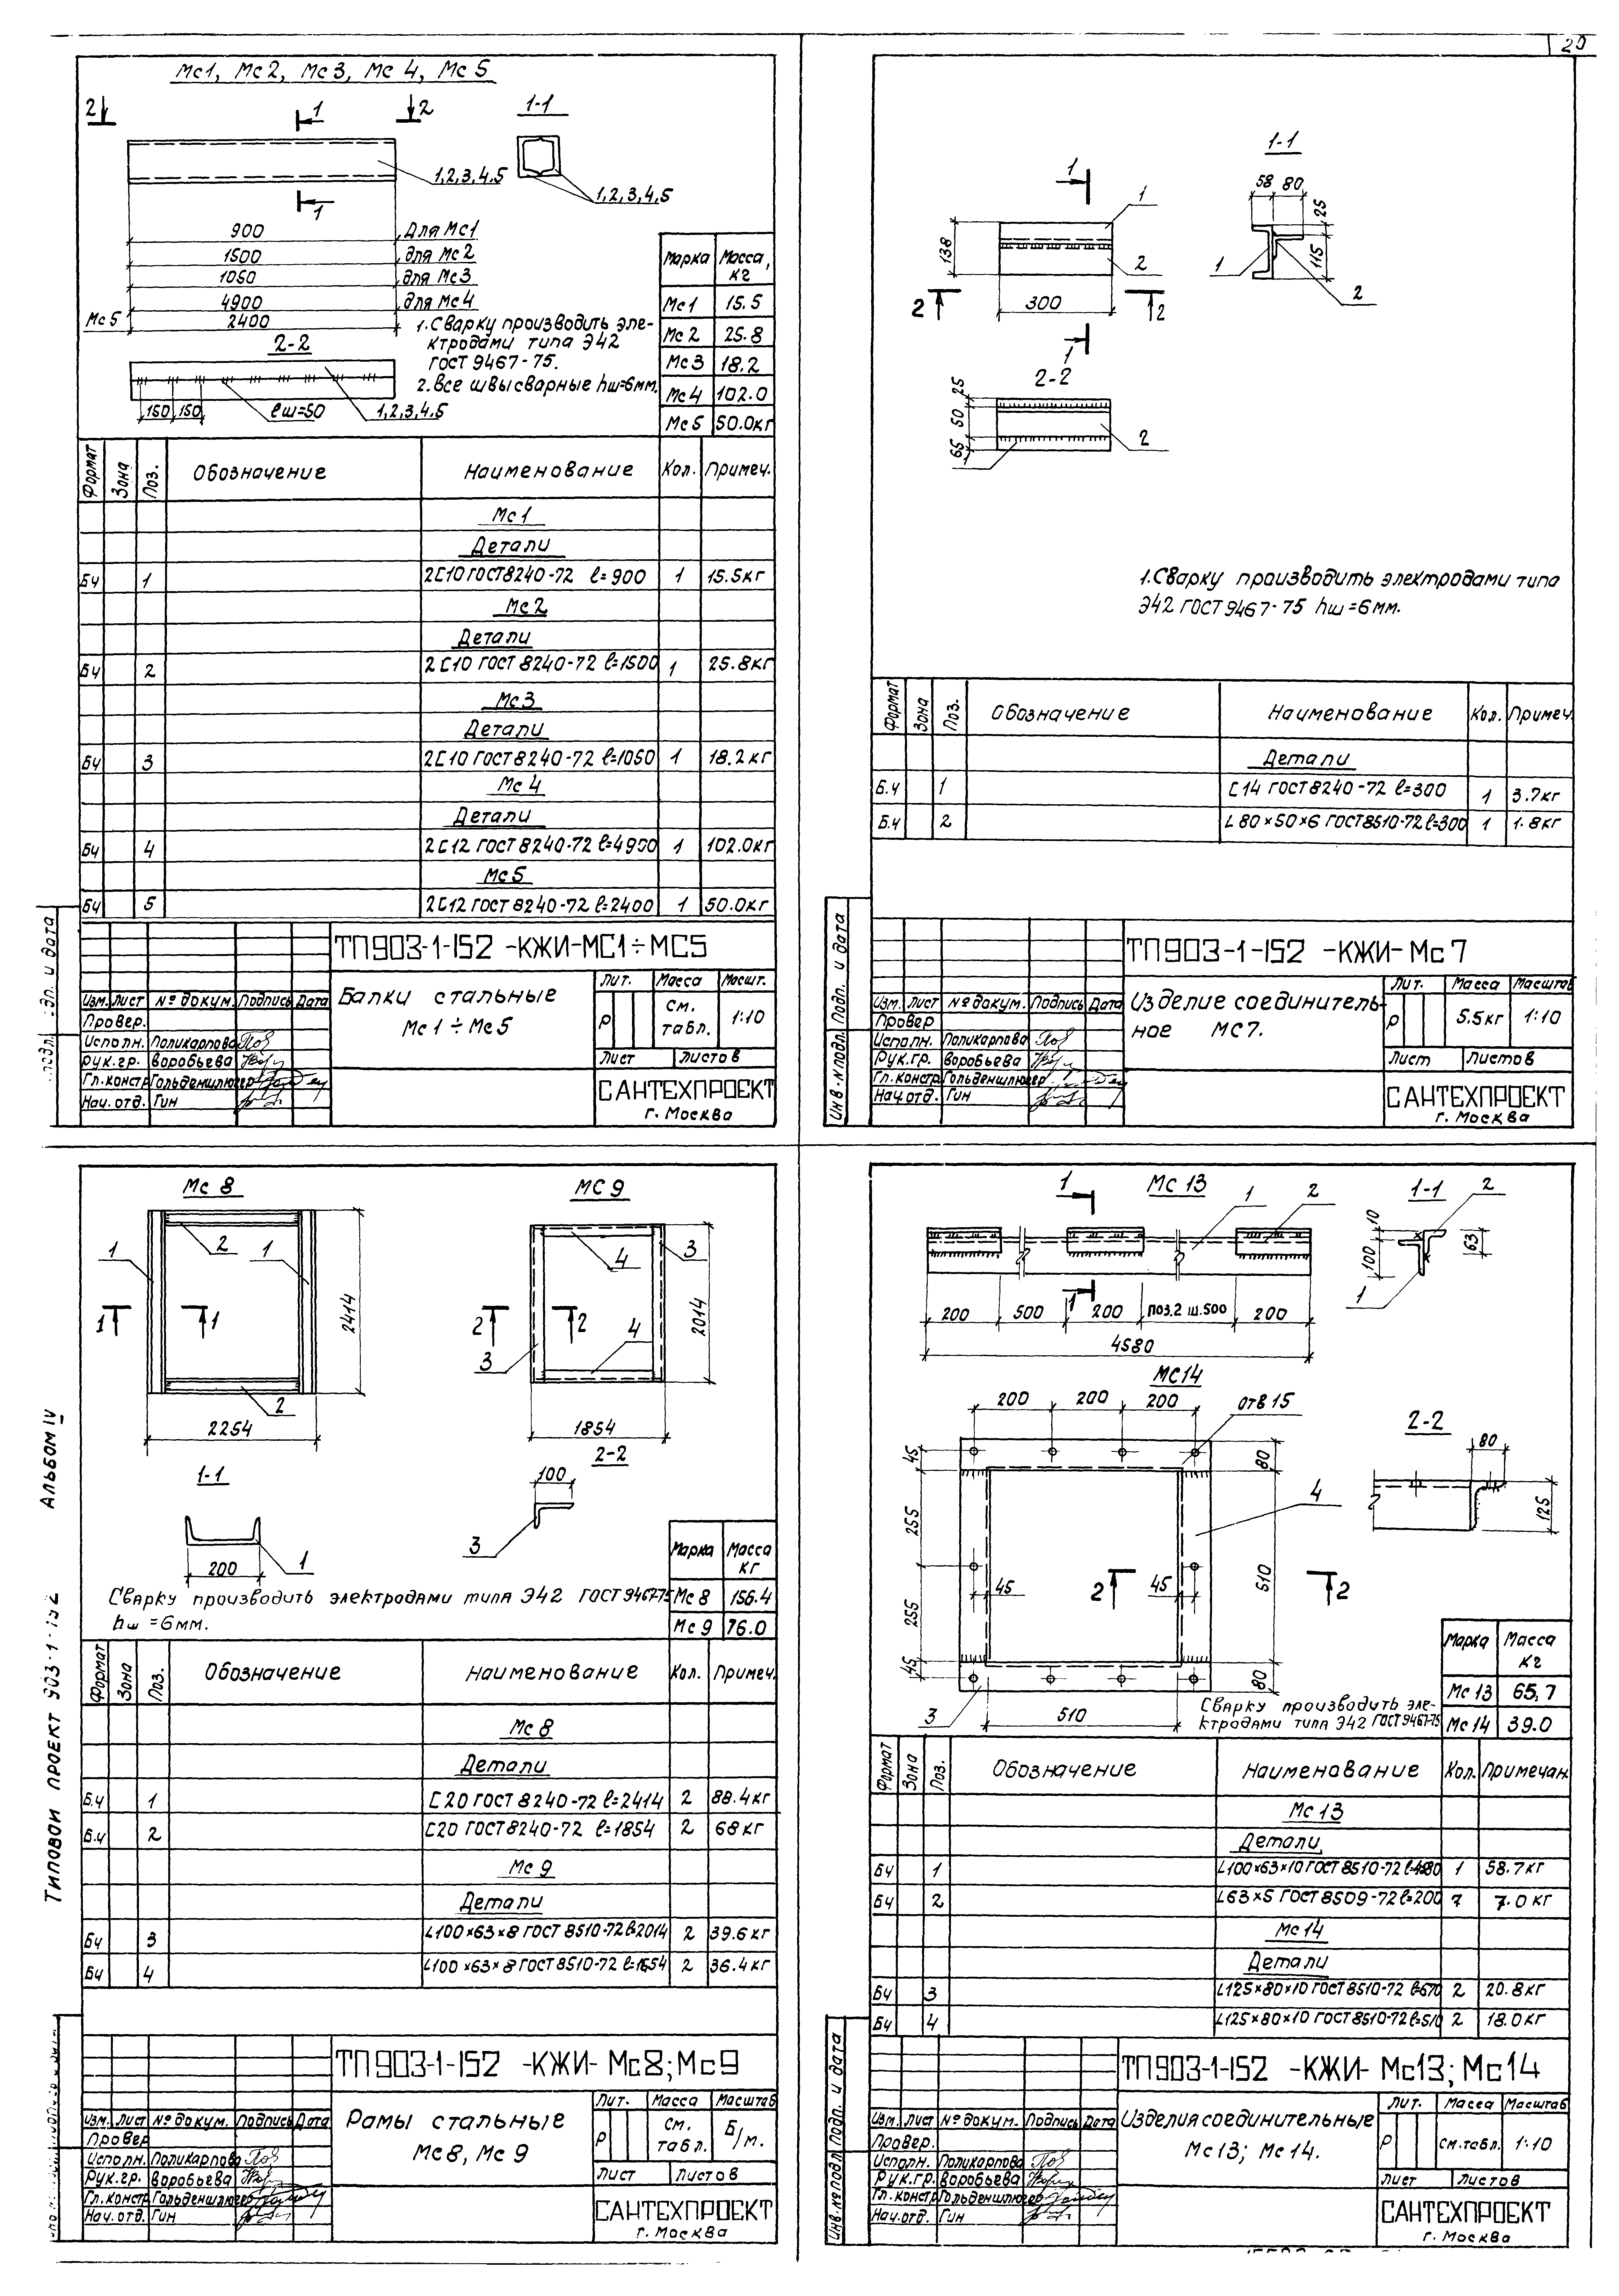 20
Мс1, Мс2, Мс3, Мс 4, Мс 5
2 1 2 1-1
1,2,3,4,5
1,2,3,4,5
1
900 Для Мс1
1500 для Мс2
1050 для Мс3
4900 для Мс4
Мс5 2400
2-2
1. Сварку производить эле-
ктродами типа Э42
ГОСТ 9467-75.
2. Все швы сварные hш=6мм.
150 150 ℓш=50 1,2,3,4,5
Марка Масса, кг
Мс1 15.5
Мс2 25.8
Мс3 18.2
Мс4 102.0
Мс5 50.0кг
Формат Зона Поз. Обозначение Наименование Кол. Примеч.
Мс1
Детали
БЧ 1 2[10 ГОСТ8240-72 ℓ=900 1 15.5кг
Мс2
Детали
БЧ 2 2[10 ГОСТ 8240-72 ℓ=1500 1 25.8кг
Мс3
Детали
БЧ 3 2[10 ГОСТ 8240-72 ℓ=1050 1 18.2кг
Мс4
Детали
БЧ 4 2[12 ГОСТ 8240-72 ℓ=4900 1 102.0кг
Мс5
БЧ 5 2[12 ГОСТ 8240-72 ℓ=2400 1 50.0кг
ТП903-1-152 -КЖИ-МС1÷МС5
Изм. Лист № докум. Подпись Дата
Провер.
Исполн. Поликарпова
Рук.гр. Воробьева
Гл.констр Гольденшлюгер
Нач.отд. Гин
Балки стальные
Мс1÷Мс5
Лит. Масса Масшт.
Р см. табл. 1:10
Лист Листов
САНТЕХПРОЕКТ
г. Москва
и дата
1 1
138 2
2 300 2
1
2-2
25
50
65
2
1-1
58 80
25
115
1 2
1. Сварку производить электродами типа
Э42 ГОСТ 9467-75 hш=6мм.
Формат Зона Поз. Обозначение Наименование Кол. Примеч.
Детали
Б.Ч 1 [14 ГОСТ8240-72 ℓ=300 1 3.7кг
Б.Ч 2 L80×50×6 ГОСТ8510-72 ℓ=300 1 1.8кг
ТП903-1-152 -КЖИ-Мс7
Изм. Лист № докум. Подпись Дата
Провер
Исполн. Поликарпова
Рук.гр. Воробьева
Гл.констр Гольденшлюгер
Нач.отд. Гин
Изделие соединитель-
ное МС7.
Лит. Масса Масштаб
Р 5.5кг 1:10
Лист Листов
САНТЕХПРОЕКТ
г. Москва
Инв.№подл. Подп. и дата
Типовой проект 903-1-152 Альбом IV
Мс 8
1 2 1
1 1 2414
2
2254
1-1
200 1
МС 9
4 3
2 2 2014
3 4
1854
2-2
100
3
Сварку производить электродами типа Э42 ГОСТ 9467-75
hш=6мм.
Марка Масса кг
Мс 8 156.4
Мс 9 76.0
Формат Зона Поз. Обозначение Наименование Кол. Примеч.
Мс 8
Детали
Б.Ч 1 [20 ГОСТ 8240-72 ℓ=2414 2 88.4кг
Б.Ч 2 [20 ГОСТ8240-72 ℓ=1854 2 68кг
Мс 9
Детали
БЧ 3 L100×63×8 ГОСТ 8510-72 ℓ=2014 2 39.6кг
БЧ 4 L100×63×8 ГОСТ 8510-72 ℓ=1654 2 36.4кг
ТП903-1-152 -КЖИ- Мс8; Мс9
Изм. Лист № докум. Подпись Дата
Провер
Исполн. Поликарпова
Рук.гр. Воробьева
Гл.констр Гольденшлюгер
Нач.отд. Гин
Рамы стальные
Мс8, Мс9
Лит. Масса Масштаб
Р см. табл. Б/м.
Лист Листов
САНТЕХПРОЕКТ
г. Москва
МС 13
1 1 2
200 500 1 200 поз.2 ш.500 200
4580
1-1
2
10
100
63
1
МС14
200 200 200 отв 15
45
255
255
45
80
510
80
4
45 2 45 2
3 510
2-2
80
125
Сварку производить эле-
ктродами типа Э42 ГОСТ 9467-75
Марка Масса кг
Мс 13 65,7
Мс 14 39.0
Формат Зона Поз. Обозначение Наименование Кол. Примечан.
Мс 13
Детали
БЧ 1 L100×63×10 ГОСТ 8510-72 ℓ=4580 1 58.7кг
БЧ 2 L63×5 ГОСТ 8509-72 ℓ=200 7 7.0 кг
Мс 14
Детали
БЧ 3 L125×80×10 ГОСТ 8510-72 ℓ=670 2 20.8кг
БЧ 4 L125×80×10 ГОСТ 8510-72 ℓ=510 2 18.0кг
ТП903-1-152 -КЖИ- Мс13; Мс14
Изм. Лист № докум. Подпись Дата
Провер.
Исполн. Поликарпова
Рук.гр. Воробьева
Гл.констр Гольденшлюгер
Нач.отд. Гин
Изделия соединительные
Мс13; Мс14.
Лит. Масса Масштаб
Р см.табл. 1:10
Лист Листов
САНТЕХПРОЕКТ
г. Москва
Инв.№подл Подп. и дата